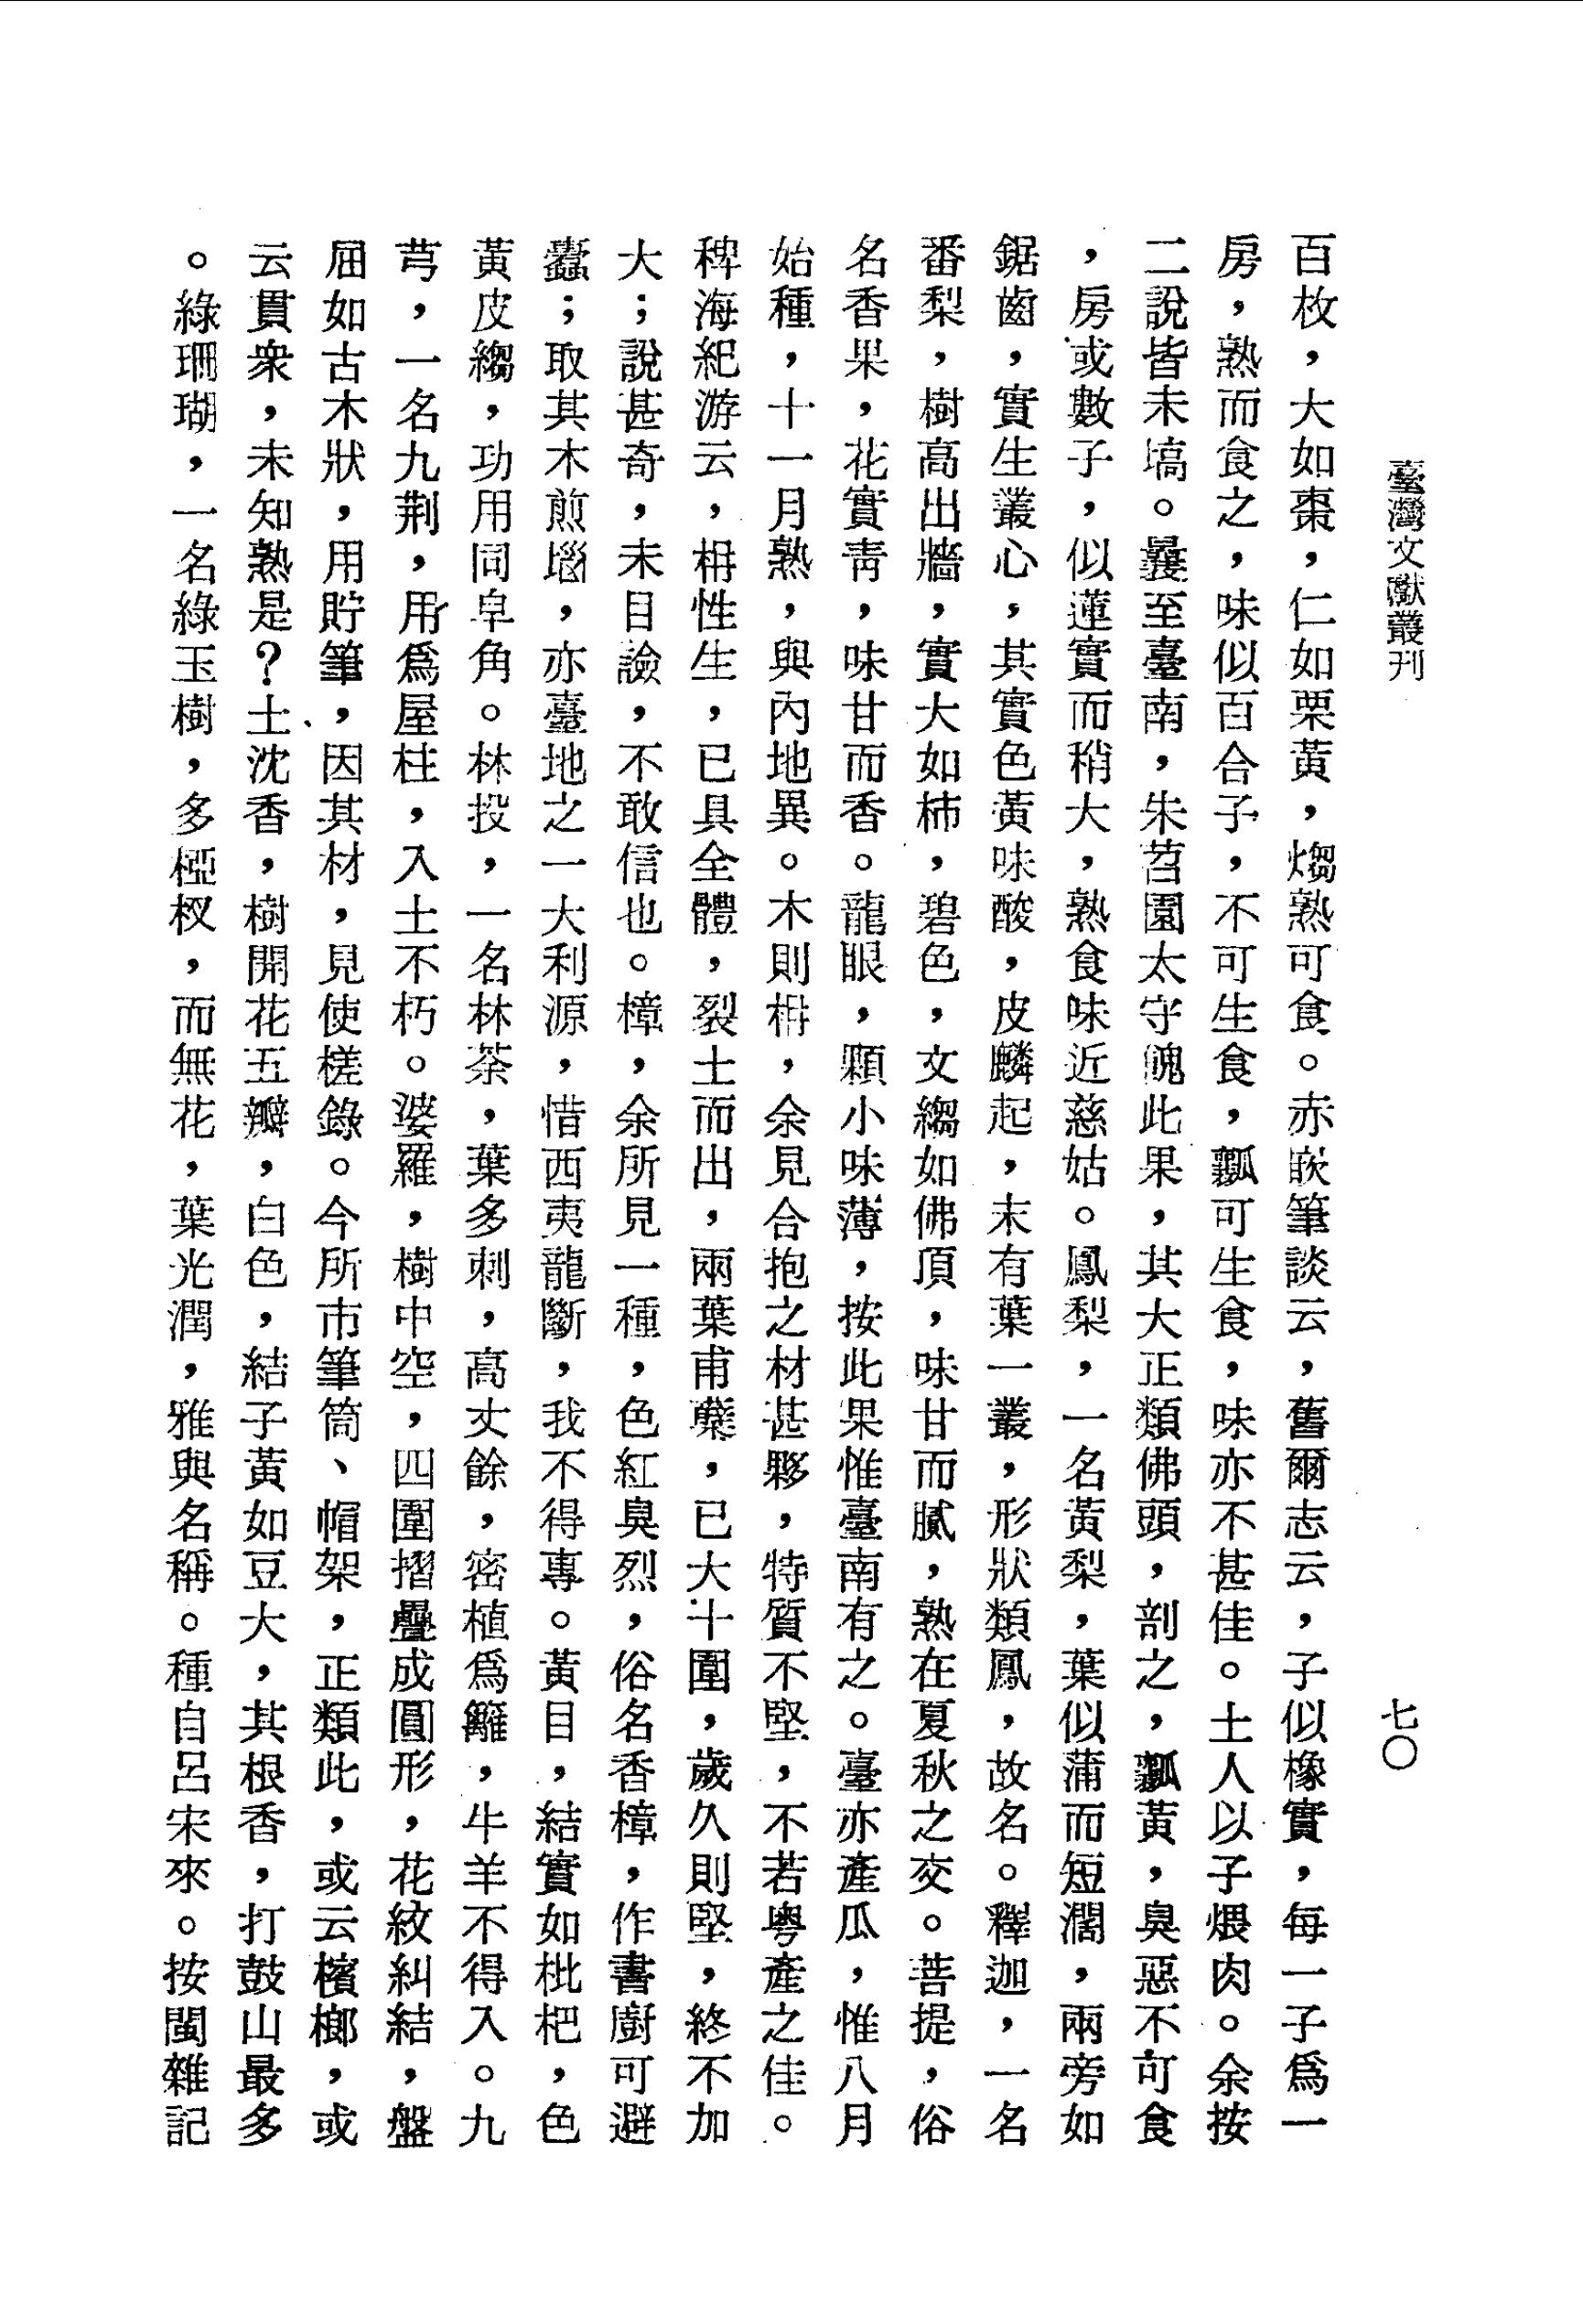 臺灣文獻叢刊
七〇
百枚，大如棗，仁如栗黃，煼熟可食。赤嵌筆談云，舊爾志云，子似橡實，每一子爲一
房，熟而食之，味似百合子，不可生食，瓤可生食，味亦不甚佳。土人以子煨肉。余按
二說皆未塙。曩至臺南，朱苕園太守餽此果，其大正類佛頭，剖之，瓤黃，臭惡不可食
，房或數子，似蓮實而稍大，熟食味近慈姑。鳳梨，一名黃梨，葉似蒲而短濶，兩旁如
鋸齒，實生叢心，其實色黃味酸，皮鱗起，末有葉一叢，形狀類鳳，故名。釋迦，一名
番梨，樹高出牆，實大如柿，碧色，文縐如佛頂，味甘而膩，熟在夏秋之交。菩提，俗
名香果，花實靑，味甘而香。龍眼，顆小味薄，按此果惟臺南有之。臺亦產瓜，惟八月
始種，十一月熟，與內地異。木則枏，余見合抱之材甚夥，特質不堅，不若粵產之佳。
稗海紀游云，枏性生，已具全體，裂土而出，兩葉甫蘖，已大十圍，歲久則堅，終不加
大；說甚奇，未目論，不敢信也。樟，余所見一種，色紅臭烈，俗名香樟，作書廚可避
蠹；取其木煎瑙，亦臺地之一大利源，惜西夷龍斷，我不得專。黃目，結實如枇杷，色
黃皮縐，功用同皁角。林投，一名林荼，葉多刺，高丈餘，密植爲籬，牛羊不得入。九
芎，一名九荆，用爲屋柱，入土不朽。婆羅，樹中空，四圍摺疊成圓形，花紋糾結，盤
屈如古木狀，用貯筆，因其材，見使槎錄。今所市筆筒、帽架，正類此，或云檳榔，或
云貫衆，未知熟是？土沈香，樹開花五瓣，白色，結子黃如豆大，其根香，打鼓山最多
。綠珊瑚，一名綠玉樹，多椏杈，而無花，葉光潤，雅與名稱。種自呂宋來。按閩雜記